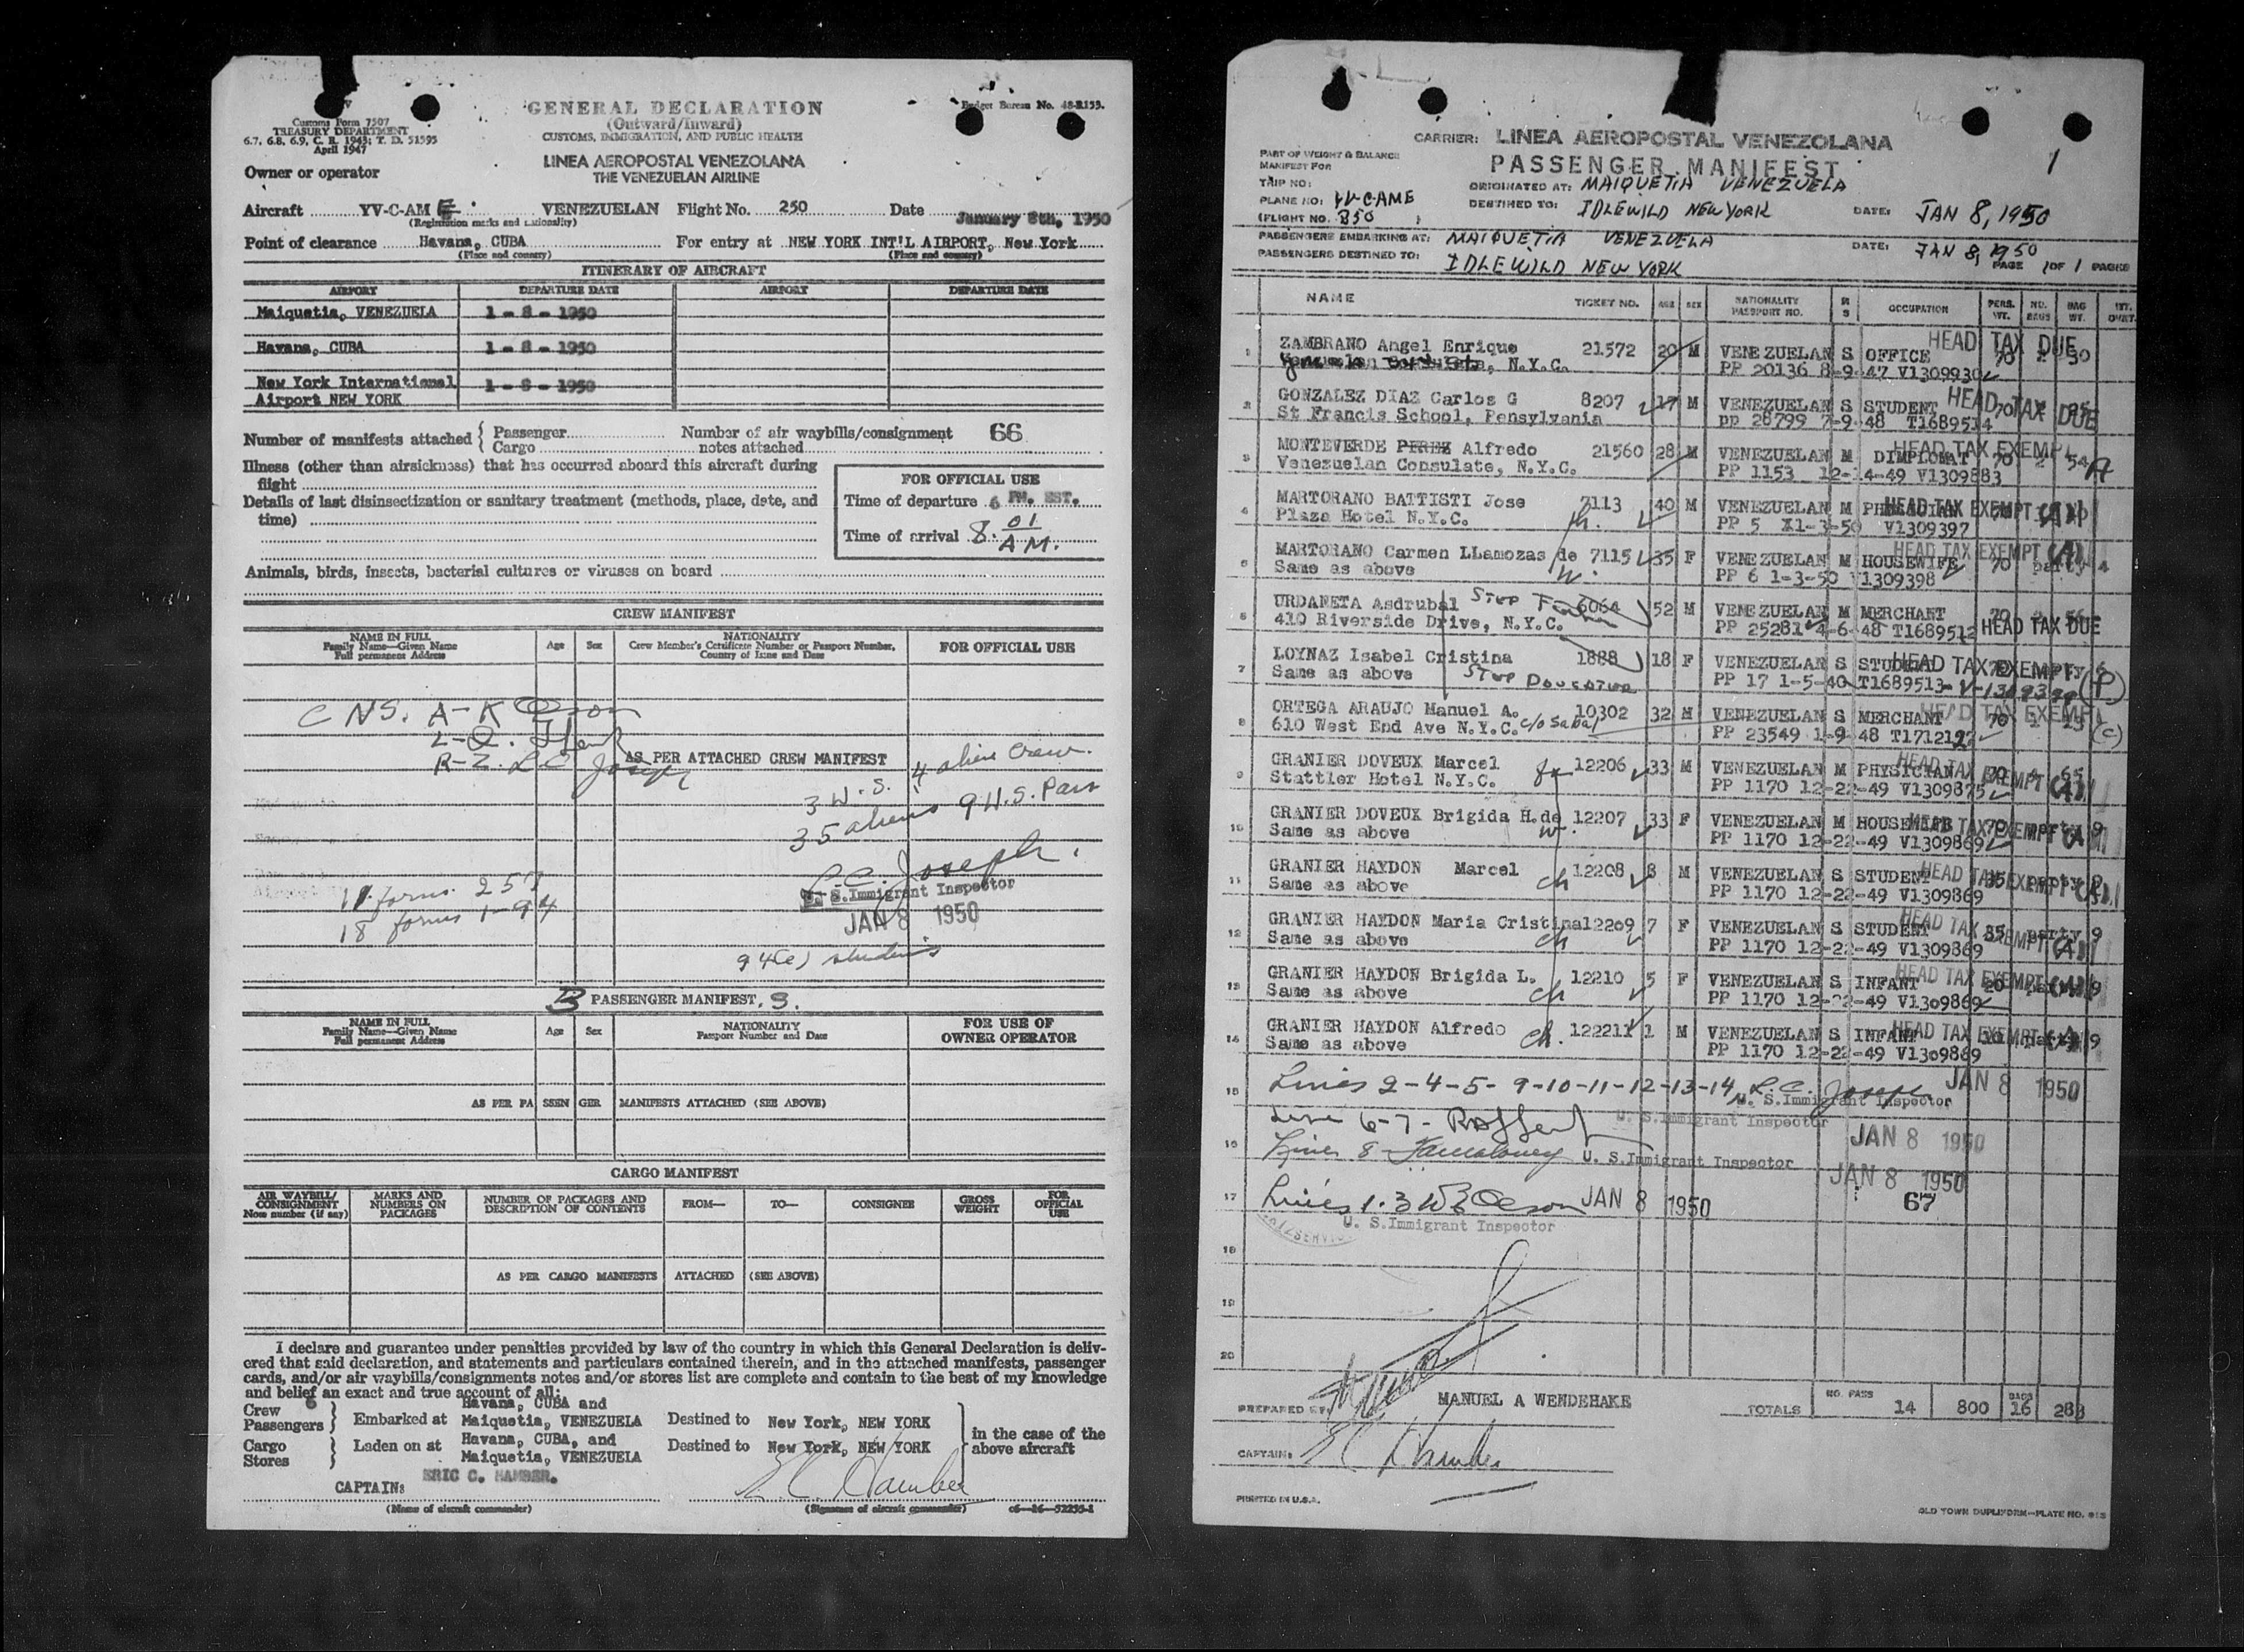 Customs Form 7507
TREASURY DEPARTMENT
6.7, 6.8, 6.9, C. R. 1943; T. D. 51595
April 1947
GENERAL DECLARATION
(Outward/Inward)
CUSTOMS, IMMIGRATION, AND PUBLIC HEALTH
Budget Bureau No. 48-R155.
LINEA AEROPOSTAL VENEZOLANA
THE VENEZUELAN AIRLINE
Owner or operator
Aircraft YV-C-AM E VENEZUELAN Flight No. 250 Date January 8th, 1950
(Registration marks and nationality)
Point of clearance Havana, CUBA For entry at NEW YORK INT'L AIRPORT, New York
(Place and country) (Place and country)
ITINERARY OF AIRCRAFT
AIRPORT DEPARTURE DATE AIRPORT DEPARTURE DATE
Maiquetia, VENEZUELA 1-8-1950
Havana, CUBA 1-8-1950
New York International 1-8-1950
Airport NEW YORK
Number of manifests attached { Passenger Number of air waybills/consignment 66
Cargo notes attached
Illness (other than airsickness) that has occurred aboard this aircraft during
flight
Details of last disinsectization or sanitary treatment (methods, place, date, and
time)
FOR OFFICIAL USE
Time of departure 6 PM. EST.
Time of arrival 8.01 A M.
Animals, birds, insects, bacterial cultures or viruses on board
CREW MANIFEST
NAME IN FULL Age Sex NATIONALITY FOR OFFICIAL USE
Family Name—Given Name Crew Member's Certificate Number or Passport Number,
Full permanent Address Country of Issue and Date
C NS. A-K Olson
L-Q.
R-Z. L.C. Joseph
AS PER ATTACHED CREW MANIFEST
4 alien crew.
3 W.S.
35 aliens 9 U.S. Pass
L. C. Joseph.
U. S. Immigrant Inspector
JAN 8 1950
11 forms 257
18 forms I-94
9 4(e) students
B PASSENGER MANIFEST. 3.
NAME IN FULL Age Sex NATIONALITY FOR USE OF
Family Name—Given Name Passport Number and Date OWNER OPERATOR
Full permanent Address
AS PER PA SSEN GER MANIFESTS ATTACHED (SEE ABOVE)
CARGO MANIFEST
AIR WAYBILL/ MARKS AND NUMBER OF PACKAGES AND FROM— TO— CONSIGNEE GROSS FOR
CONSIGNMENT NUMBERS ON DESCRIPTION OF CONTENTS WEIGHT OFFICIAL
Note number (if any) PACKAGES USE
AS PER CARGO MANIFESTS ATTACHED (SEE ABOVE)
I declare and guarantee under penalties provided by law of the country in which this General Declaration is deliv-
ered that said declaration, and statements and particulars contained therein, and in the attached manifests, passenger
cards, and/or air waybills/consignments notes and/or stores list are complete and contain to the best of my knowledge
and belief an exact and true account of all:
Crew 6 Havana, CUBA and
Passengers } Embarked at Maiquetia, VENEZUELA Destined to New York, NEW YORK in the case of the
Cargo Havana, CUBA, and above aircraft
Stores } Laden on at Maiquetia, VENEZUELA Destined to New York, NEW YORK
CAPTAIN: ERIC C. HAMBER. E C Hamber
(Name of aircraft commander) (Signature of aircraft commander) c6—26—52255-1
CARRIER: LINEA AEROPOSTAL VENEZOLANA
PASSENGER MANIFEST 1
PART OF WEIGHT & BALANCE
MANIFEST FOR
TRIP NO:
PLANE NO: YV-C-AME
(FLIGHT NO. 250 )
ORIGINATED AT: MAIQUETIA VENEZUELA
DESTINED TO: IDLEWILD NEW YORK DATE: JAN 8, 1950
PASSENGERS EMBARKING AT: MAIQUETIA VENEZUELA DATE: JAN 8, 1950
PASSENGERS DESTINED TO: IDLEWILD NEW YORK PAGE 1 OF 1 PAGES
NAME TICKET NO. AGE SEX NATIONALITY M OCCUPATION PERS. NO. BAG WT.
PASSPORT NO. S WT. BAGS WT. OVRT.
1 ZAMBRANO Angel Enrique 21572 20 M VENEZUELAN S OFFICE 70 2 30 HEAD TAX DUE
Venezuelan Consulate, N.Y.C. PP 20136 8-9-47 V1309930
2 GONZALEZ DIAZ Carlos G 8207 17 M VENEZUELAN S STUDENT 70 HEAD TAX DUE
St Francis School, Pensylvania PP 28799 7-9-48 T1689514
3 MONTEVERDE PEREZ Alfredo 21560 28 M VENEZUELAN M DIMPLOMAT 70 2 54 HEAD TAX EXEMPT A
Venezuelan Consulate, N.Y.C. PP 1153 12-14-49 V1309883
4 MARTORANO BATTISTI Jose 7113 40 M VENEZUELAN M PHYSICIAN HEAD TAX EXEMPT (A)
Plaza Hotel N.Y.C. h. PP 5 1-3-50 V1309397
5 MARTORANO Carmen LLamozas de 7115 35 F VENEZUELAN M HOUSEWIFE 70 party 4 HEAD TAX EXEMPT (A)
Same as above w. PP 6 1-3-50 V1309398
6 URDANETA Asdrubal Step Father 6064 52 M VENEZUELAN M MERCHANT 70 56
410 Riverside Drive, N.Y.C. PP 25281 4-6-48 T1689512 HEAD TAX DUE
7 LOYNAZ Isabel Cristina 1888 18 F VENEZUELAN S STUDENT party 6 HEAD TAX EXEMPT
Same as above Step Daughter PP 17 1-5-40 T1689513 (P)
8 ORTEGA ARAUJO Manuel A. 10302 32 M VENEZUELAN S MERCHANT 70 HEAD TAX EXEMPT
610 West End Ave N.Y.C. c/o Sabal PP 23549 1-9-48 (c)
9 GRANIER DOVEUX Marcel 12206 33 M VENEZUELAN M PHYSICIAN 70 65 HEAD TAX EXEMPT (A)
Stattler Hotel N.Y.C. PP 1170 12-22-49 V1309875
10 GRANIER DOVEUX Brigida H.de 12207 33 F VENEZUELAN M HOUSEWIFE 70 9 HEAD TAX EXEMPT (A)
Same as above w. PP 1170 12-22-49 V1309869
11 GRANIER HAYDON Marcel 12208 8 M VENEZUELAN S STUDENT 85 party 9 HEAD TAX EXEMPT (A)
Same as above ch PP 1170 12-22-49 V1309869
12 GRANIER HAYDON Maria Cristina 12209 7 F VENEZUELAN S STUDENT 35 party 9 HEAD TAX EXEMPT (A)
Same as above ch PP 1170 12-22-49 V1309869
13 GRANIER HAYDON Brigida L. 12210 5 F VENEZUELAN S INFANT 20 9 HEAD TAX EXEMPT (A)
Same as above ch PP 1170 12-22-49 V1309869
14 GRANIER HAYDON Alfredo 12211 1 M VENEZUELAN S INFANT 9 HEAD TAX EXEMPT (A)
Same as above ch. PP 1170 12-22-49 V1309869
15 Lines 2-4-5-9-10-11-12-13-14 L.C. Joseph JAN 8 1950
U. S. Immigrant Inspector
Line 6-7- U. S. Immigrant Inspector JAN 8 1950
16 Lines 8 U. S. Immigrant Inspector JAN 8 1950
17 Lines 1.3 Olson JAN 8 1950 67
U. S. Immigrant Inspector
18
19
20
PREPARED BY MANUEL A WENDEHAKE TOTALS NO. PASS 14 800 BAGS 16 288
CAPTAIN: E C Hamber
PRINTED IN U.S.A.
OLD TOWN DUPLIFORM—PLATE NO. 913